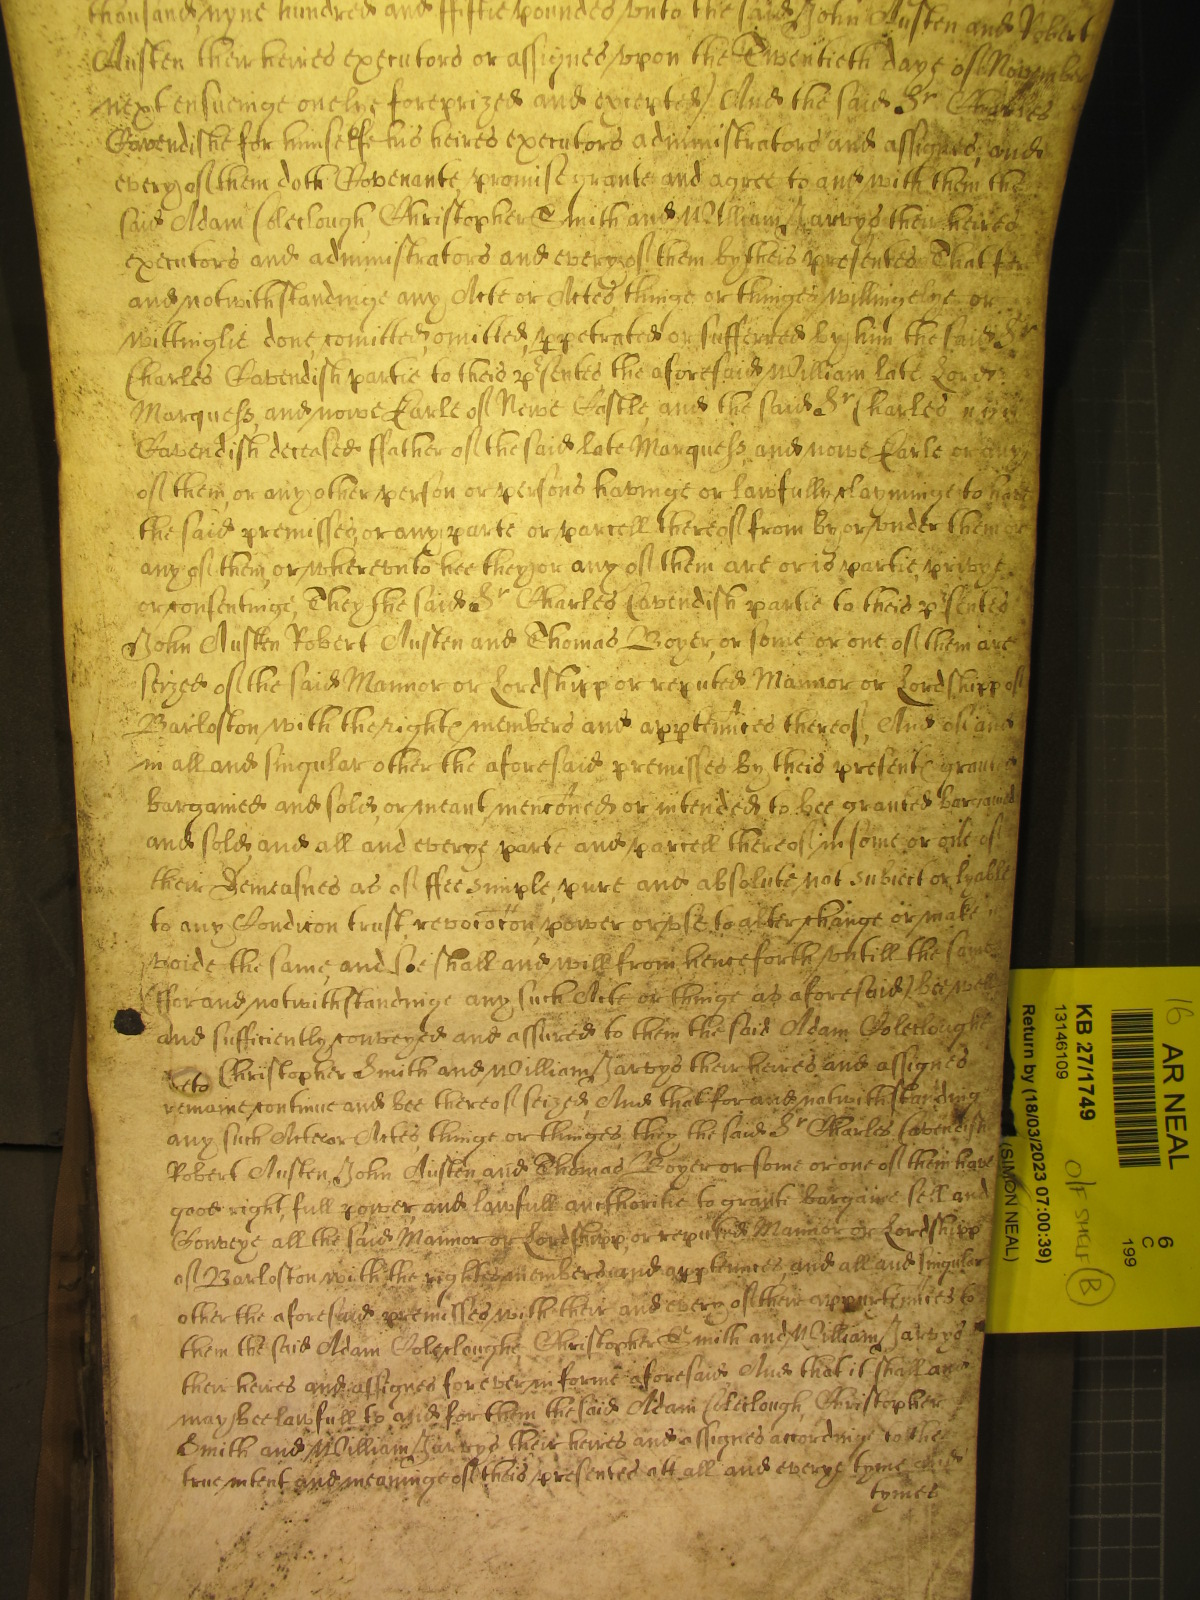 thousand nyne hundred and ffiftie poundes vnto the said John Austen and Robert
Austen their heires executors or assignes vpon the Twentieth daye of November
next ensueinge onelye foreprized and excepted) And the said Sr Charles
Cavendishe for himselfe his heires executors administrators and assignes, and
every of them doth Covenante, promise grante and agree to and with them the
said Adam Coleclough, Christopher Smith and William Jarvys their heires
executors and administrators and every of them by theis presentes That for
and notwithstandinge any Acte or Actes thinge or thinges willingelye or
wittinglie done, comitted, omitted, ppetrated or sufferred by him the said Sr
Charles Cavendish partie to theis psentes the aforesaid William late Lord
Marquess, and nowe Earle of Newe Castle, and the said Sr Charles
Cavendish deceased ffather of the said late Marquess, and nowe Earle or any
of them, or any other person or persons havinge or lawfully clayminge to have
the said premisses, or any parte or parcell thereof from by, or vnder them or
any of them, or wherevnto hee they, or any of them are or is partie, privye
or consentinge, They the said Sr Charles Cavendish partie to theis psentes
John Austen Robert Austen and Thomas Boyer, or some or one of them are
seized of the said Mannor or Lordshipp or reputed Mannor or Lordshipp of
Barloston with the rights members and apptennces thereof, And of and
in all and singular other the aforesaid premisses by theis presents graunted
bargained and sold, or meant, menconed or intended to bee granted bargained
and sold, and all and everye parte and parcell thereof in some or one of
their Demeasnes as of ffee simple, pure and absolute, not subiect or lyable
to any Condicon trust, revocacon, power or vse to alter, change or make
voide the same, and soe shall and will from henceforth vntill the same
(ffor and notwithstandinge any such Acte or thinge as aforesaid) bee well
and sufficiently conveyed and assured to them the said Adam Colecloughe
Christopher Smith and William Jarvys their heires and assignes
remaine, continue and bee thereof seized, And that for and notwithstanding
any such Acte or Actes, thinge or thinges they the said Sr Charles Cavendish
Robert Austen, John Austen and Thomas Boyer or some or one of them have
good right, full power, and lawfull aucthoritie to grante bargaine sell and
Conveye all the said Mannor or Lordshipp, or reputed Mannor or Lordshipp
of Barloston with the rights members and apptennces and all and singular
other the aforesaid premisses with their and every of their appurtennces to
them the said Adam Colecloughe Christopher Smith and William Jarvys
their heires and assignes forever in forme aforesaid And that it shall and
may bee lawfull to and for them the said Adam Coleclough, Christopher
Smith and William Jarvys their heires and assignes accordinge to the
true intent and meaninge of theis presentes att all and everye tyme and
tymes
16 AR NEAL
6
C
199
KB 27/1749
13146109
O/F SHELF B
Return by (18/03/2023 07:00:39)
(SIMON NEAL)